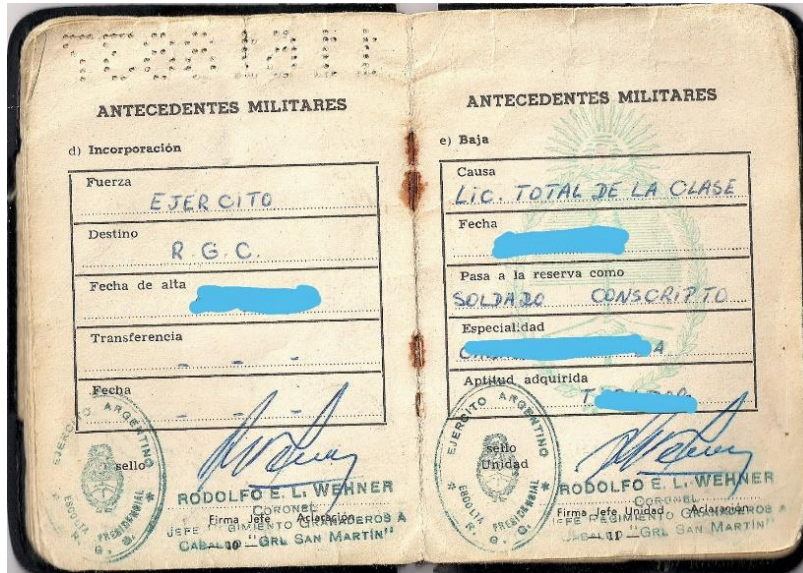 ANTECEDENTES MILITARES
d) Incorporación
Fuerza
EJERCITO
Destino
R.G.C.
Fecha de alta
Transferencia
- - -
Fecha
- - -
EJERCITO ARGENTINO
ESCOLTA PRESIDENCIAL
R. G. C.
sello
RODOLFO E. L. WEHNER
CORONEL
Firma Jefe Aclaración
JEFE REGIMIENTO GRANADEROS A
CABALLO "GRL SAN MARTIN"
10
ANTECEDENTES MILITARES
e) Baja
Causa
LIC. TOTAL DE LA CLASE
Fecha
Pasa a la reserva como
SOLDADO CONSCRIPTO
Especialidad
Aptitud adquirida
EJERCITO ARGENTINO
ESCOLTA PRESIDENCIAL
R. G. C.
sello
Unidad
RODOLFO E. L. WEHNER
CORONEL
Firma Jefe Unidad Aclaración
JEFE REGIMIENTO GRANADEROS A
CABALLO "GRL SAN MARTIN"
11